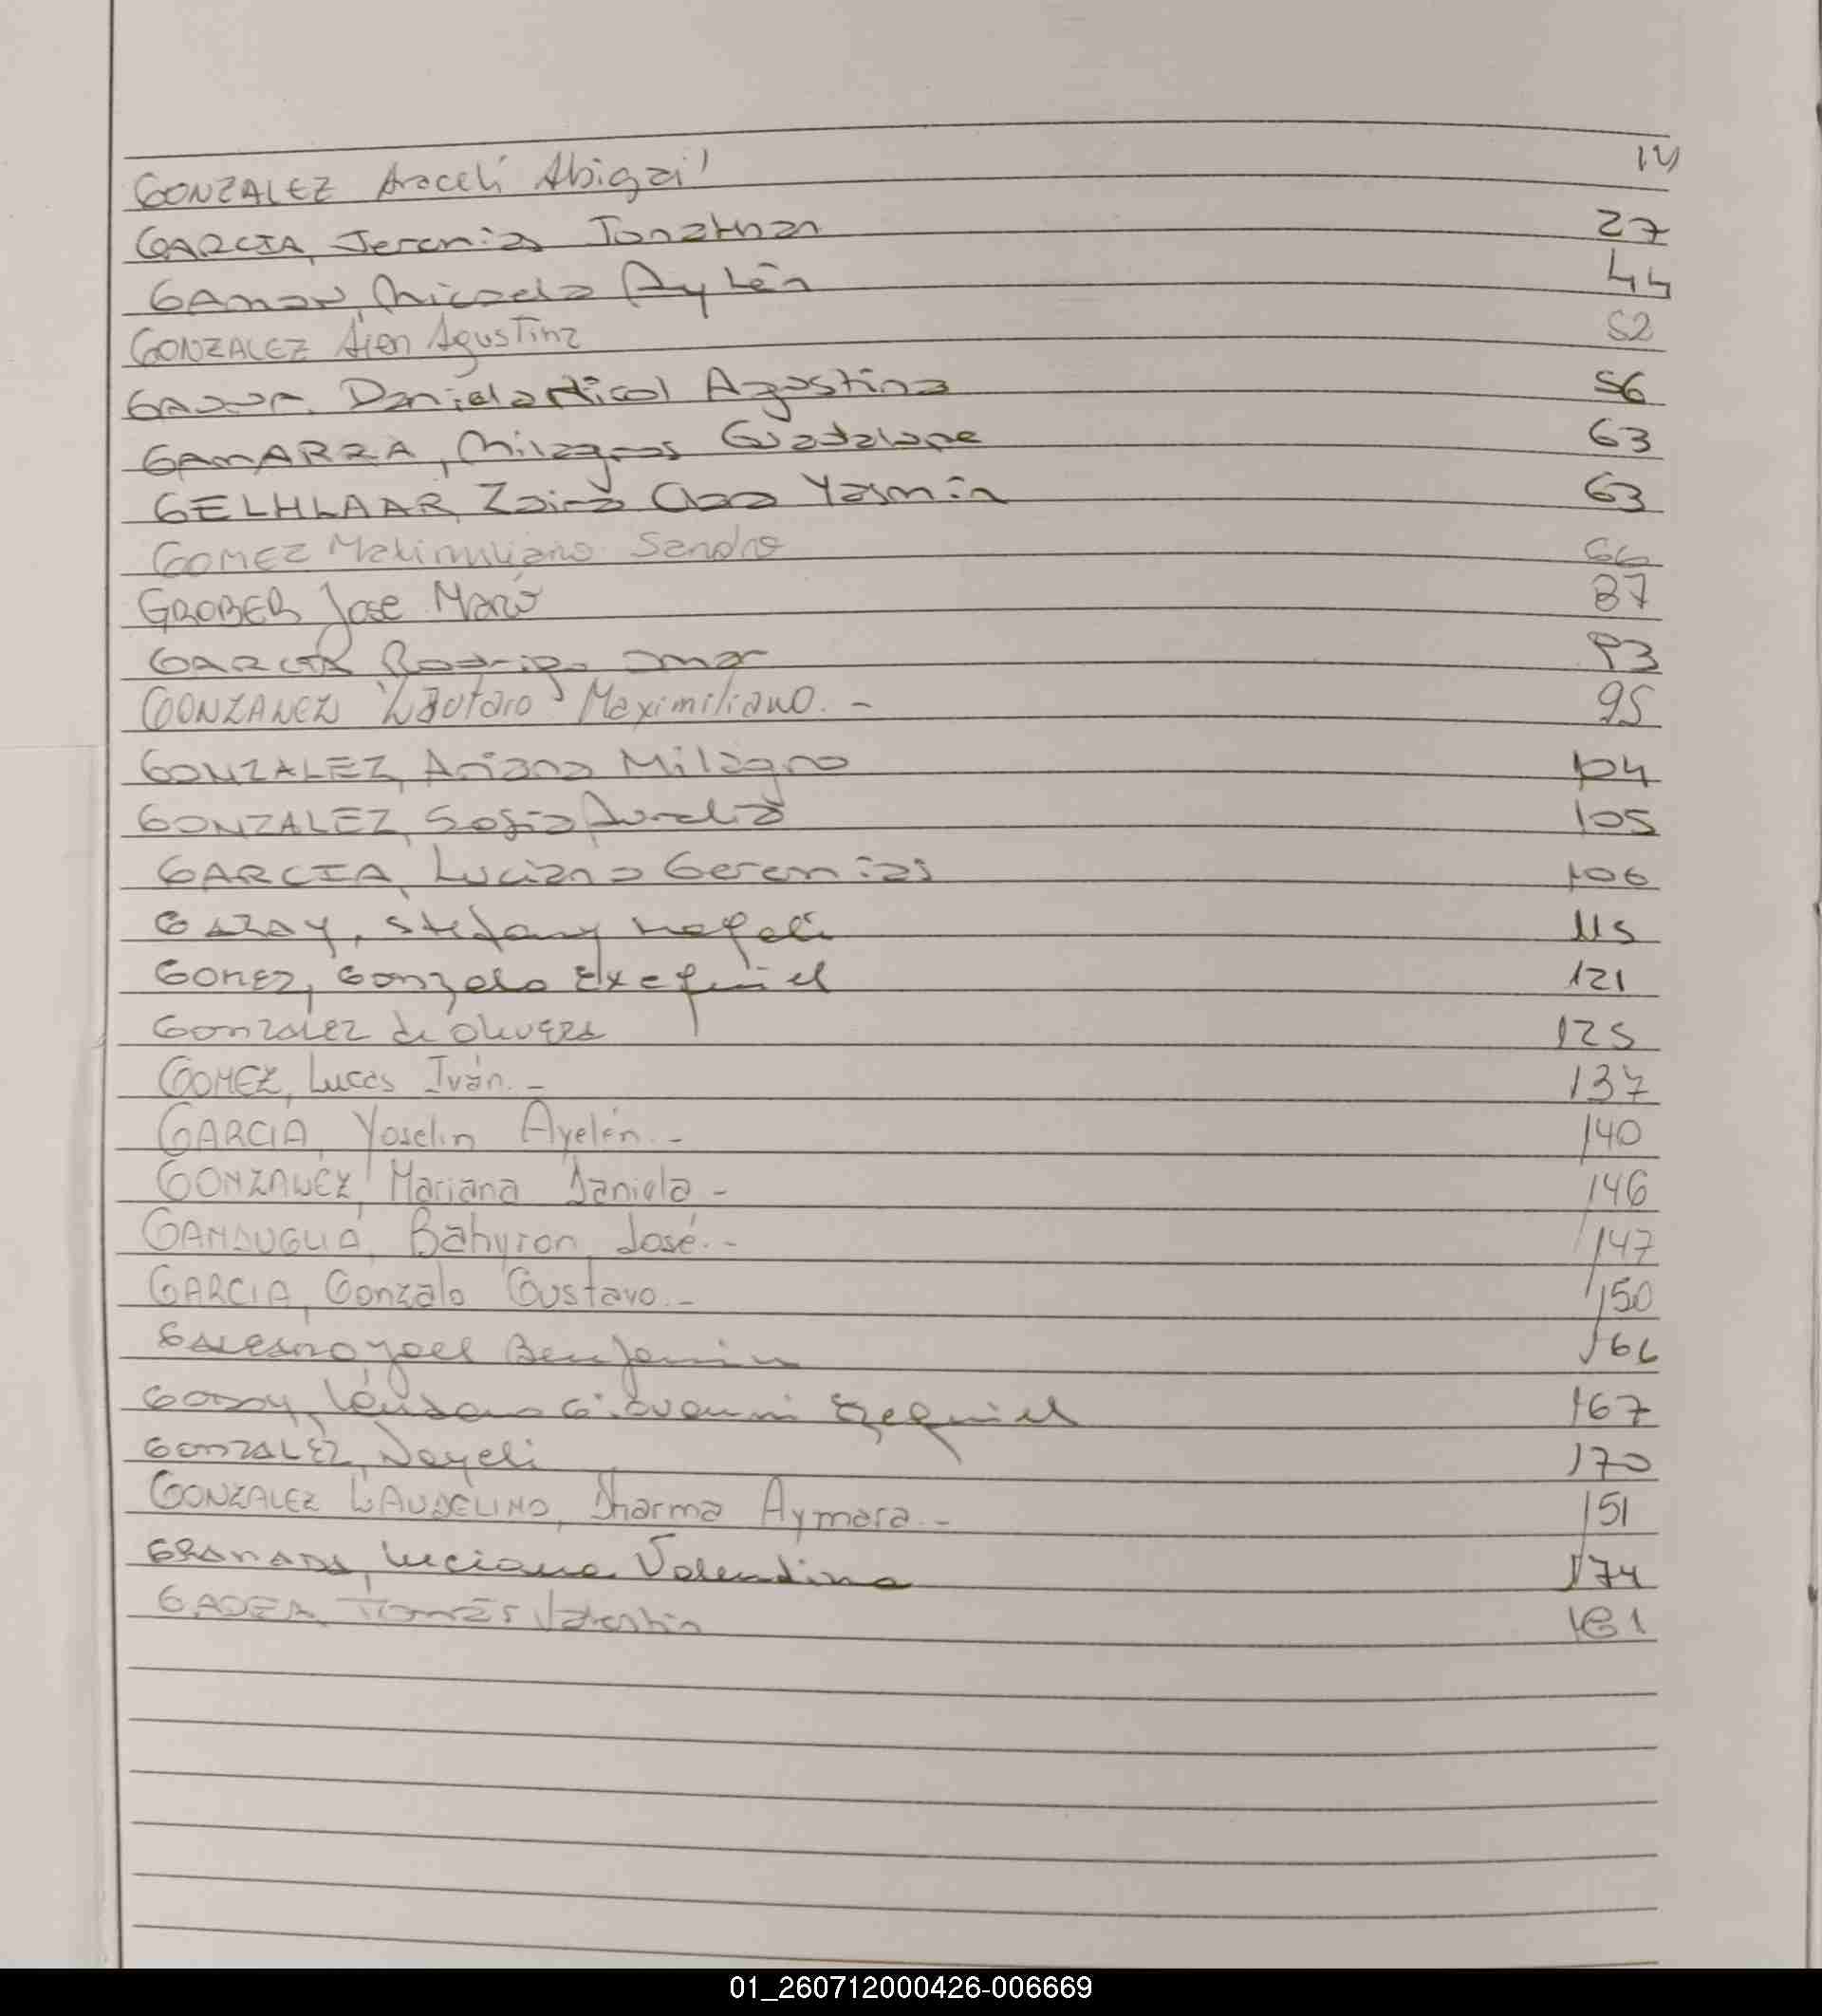 GONZALEZ Araceli Abigail 14
GARCIA, Jeremias Jonathan 27
Micaela Aylén 44
GONZALEZ Aien Agustina 52
Daniela Nicol Agostina 56
GAMARRA, Milagros Guadalupe 63
GELHLAAR, Zaira Yasmin 63
GOMEZ Maximiliano Sandro 66
GROBER Jose Mario 87
GARCIA Rodrigo Omar 93
GONZALEZ Lautaro Maximiliano. - 95
GONZALEZ, Ariana Milagro 104
GONZALEZ, Sofia Aurelia 105
GARCIA, Luciano Geremias 106
GARAY, Stefany 115
GOMEZ, Gonzalo Exequiel 121
Gonzalez de Olivera 125
GOMEZ, Lucas Iván. - 137
GARCIA, Yoselin Ayelén. - 140
GONZALEZ, Mariana Daniela - 146
GANDUGLIA, Bahyron José. - 147
GARCIA, Gonzalo Gustavo. - 150
Joel Benjamin 166
GODOY, Giovanni Ezequiel 167
GONZALEZ, Nayeli 170
GONZALEZ LAUDELINO, Dharma Aymara. - 151
GRANADA, Luciana Valentina 174
GADEA, Tomás Valentin 181
01_260712000426-006669